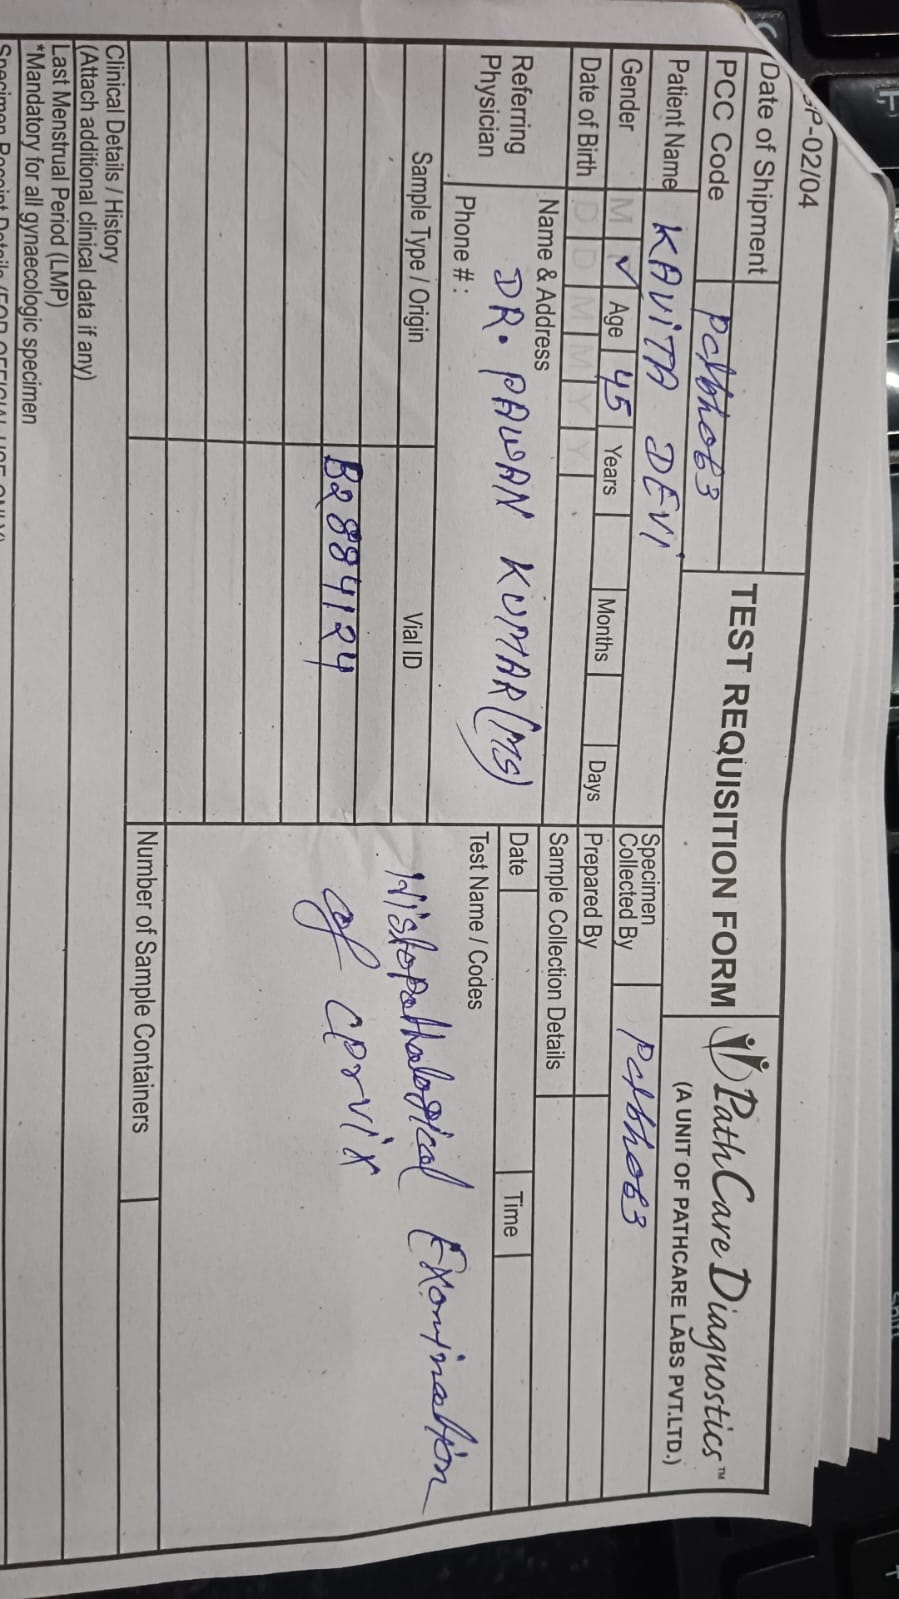 GP-02/04
Date of Shipment
PCC Code
TEST REQUISITION FORM
PathCare Diagnostics™
(A UNIT OF PATHCARE LABS PVT.LTD.)
Patient Name KAVITA DEVI
Specimen Collected By
Gender M ✓ Age 45 Years Months Days
Prepared By
Date of Birth D D M M Y Y
Sample Collection Details
Referring Physician
Name & Address
DR. PAWAN KUMAR (MS)
Phone # :
Date Time
Sample Type / Origin Vial ID
Test Name / Codes
B2884124
Histopathological Examination
of Cervix
Number of Sample Containers
Clinical Details / History
(Attach additional clinical data if any)
Last Menstrual Period (LMP)
*Mandatory for all gynaecologic specimen